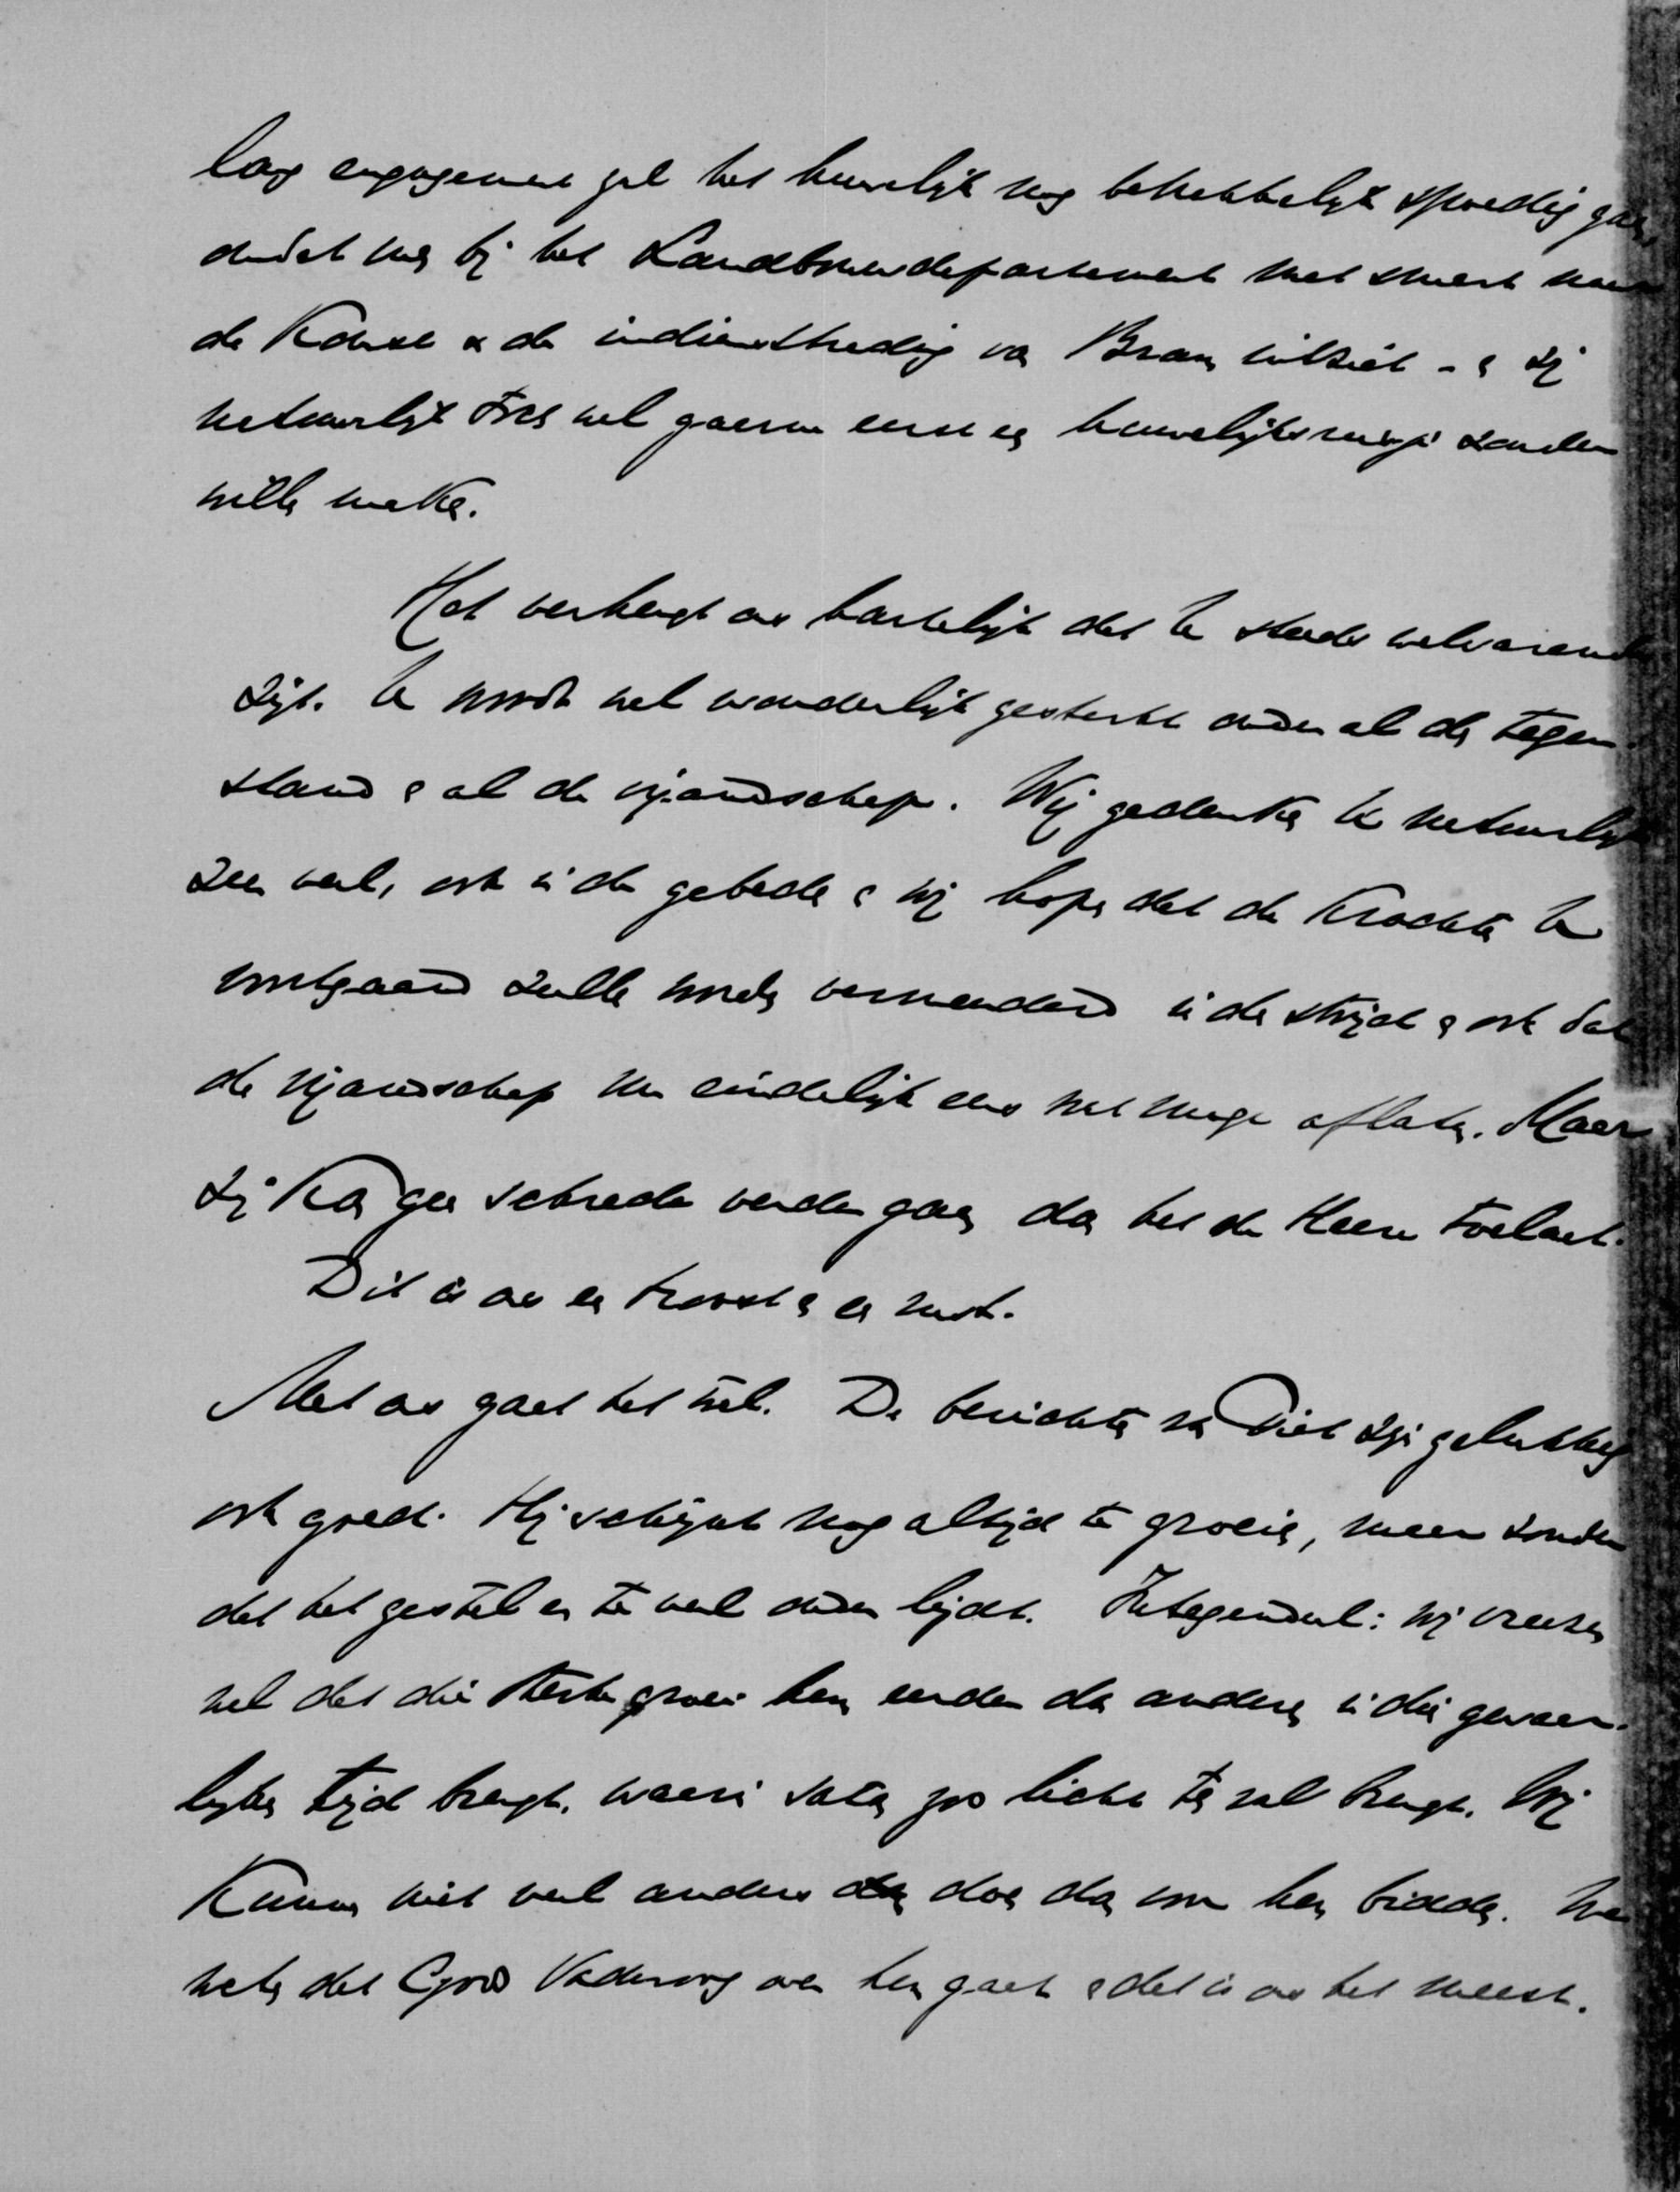 lang engagement zal het huwelijk nog betrekkelijk spoedig gaan,
omdat men bij het Landbouwdepartement met smart naar
de komst & de indiensttreding van Bram uitziet - en zij
natuurlijk toch wel gaarne eerst een huwelijksreisje zouden
willen maken.
Het verheugt ons hartelijk dat U steeds welvarende
zijt. U wordt wel wonderlijk gesterkt onder al den tegen-
stand en al de vijandschap. Wij gedenken U natuurlijk
zeer veel, ook in den gebede en wij hopen dat de krachten U
voortgaand zullen worden vermeerderd in den strijd en ook dat
de vijandschap nu eindelijk eens wat moge aflaten. Maar
zij kan geen schrede verder gaan dan het de Heere toelaat.
Dit is ons een troost en een rust.
Met ons gaat het wel. De berichten van Piet zijn gelukkig
ook goed. Hij schijnt nog altijd te groeien, maar zonder
dat het gestel er te veel onder lijdt. Integendeel: wij vreezen
wel dat die sterke groei hem eerder dan anderen in die gevaar-
lijken tijd brengt, waarin satan zoo licht ten val brengt. Wij
kunnen niet veel anders doen dan voor hem bidden. We
weten dat Gods Vaderoog over hem gaat en dat is ons het meest.